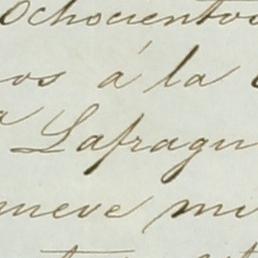 Ochocientos
os á la
Lafragu
nueve mi